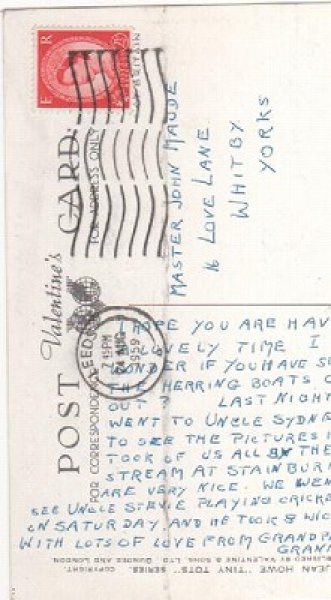 POST CARD
Valentine's
FOR CORRESPONDENCE
FOR ADDRESS ONLY
E R
LEEDS
7 15PM
1959
MASTER JOHN MAUDE
16 LOVE LANE
WHITBY
YORKS
I HOPE YOU ARE HAV
A LOVELY TIME I
WONDER IF YOU HAVE S
THE HERRING BOATS G
OUT? LAST NIGHT
WENT TO UNCLE SYDNE
TO SEE THE PICTURES
TOOK OF US ALL BY THE
STREAM AT STAINBUR
ARE VERY NICE. WE WEN
SEE UNCLE STEVIE PLAYING CRICKE
ON SATURDAY AND HE TOOK 8 WIC
WITH LOTS OF LOVE FROM GRANDPA
GRANN
JEAN HOWE "TINY TOTS" SERIES. COPYRIGHT.
BLISHED BY VALENTINE & SONS, LTD. DUNDEE AND LONDON